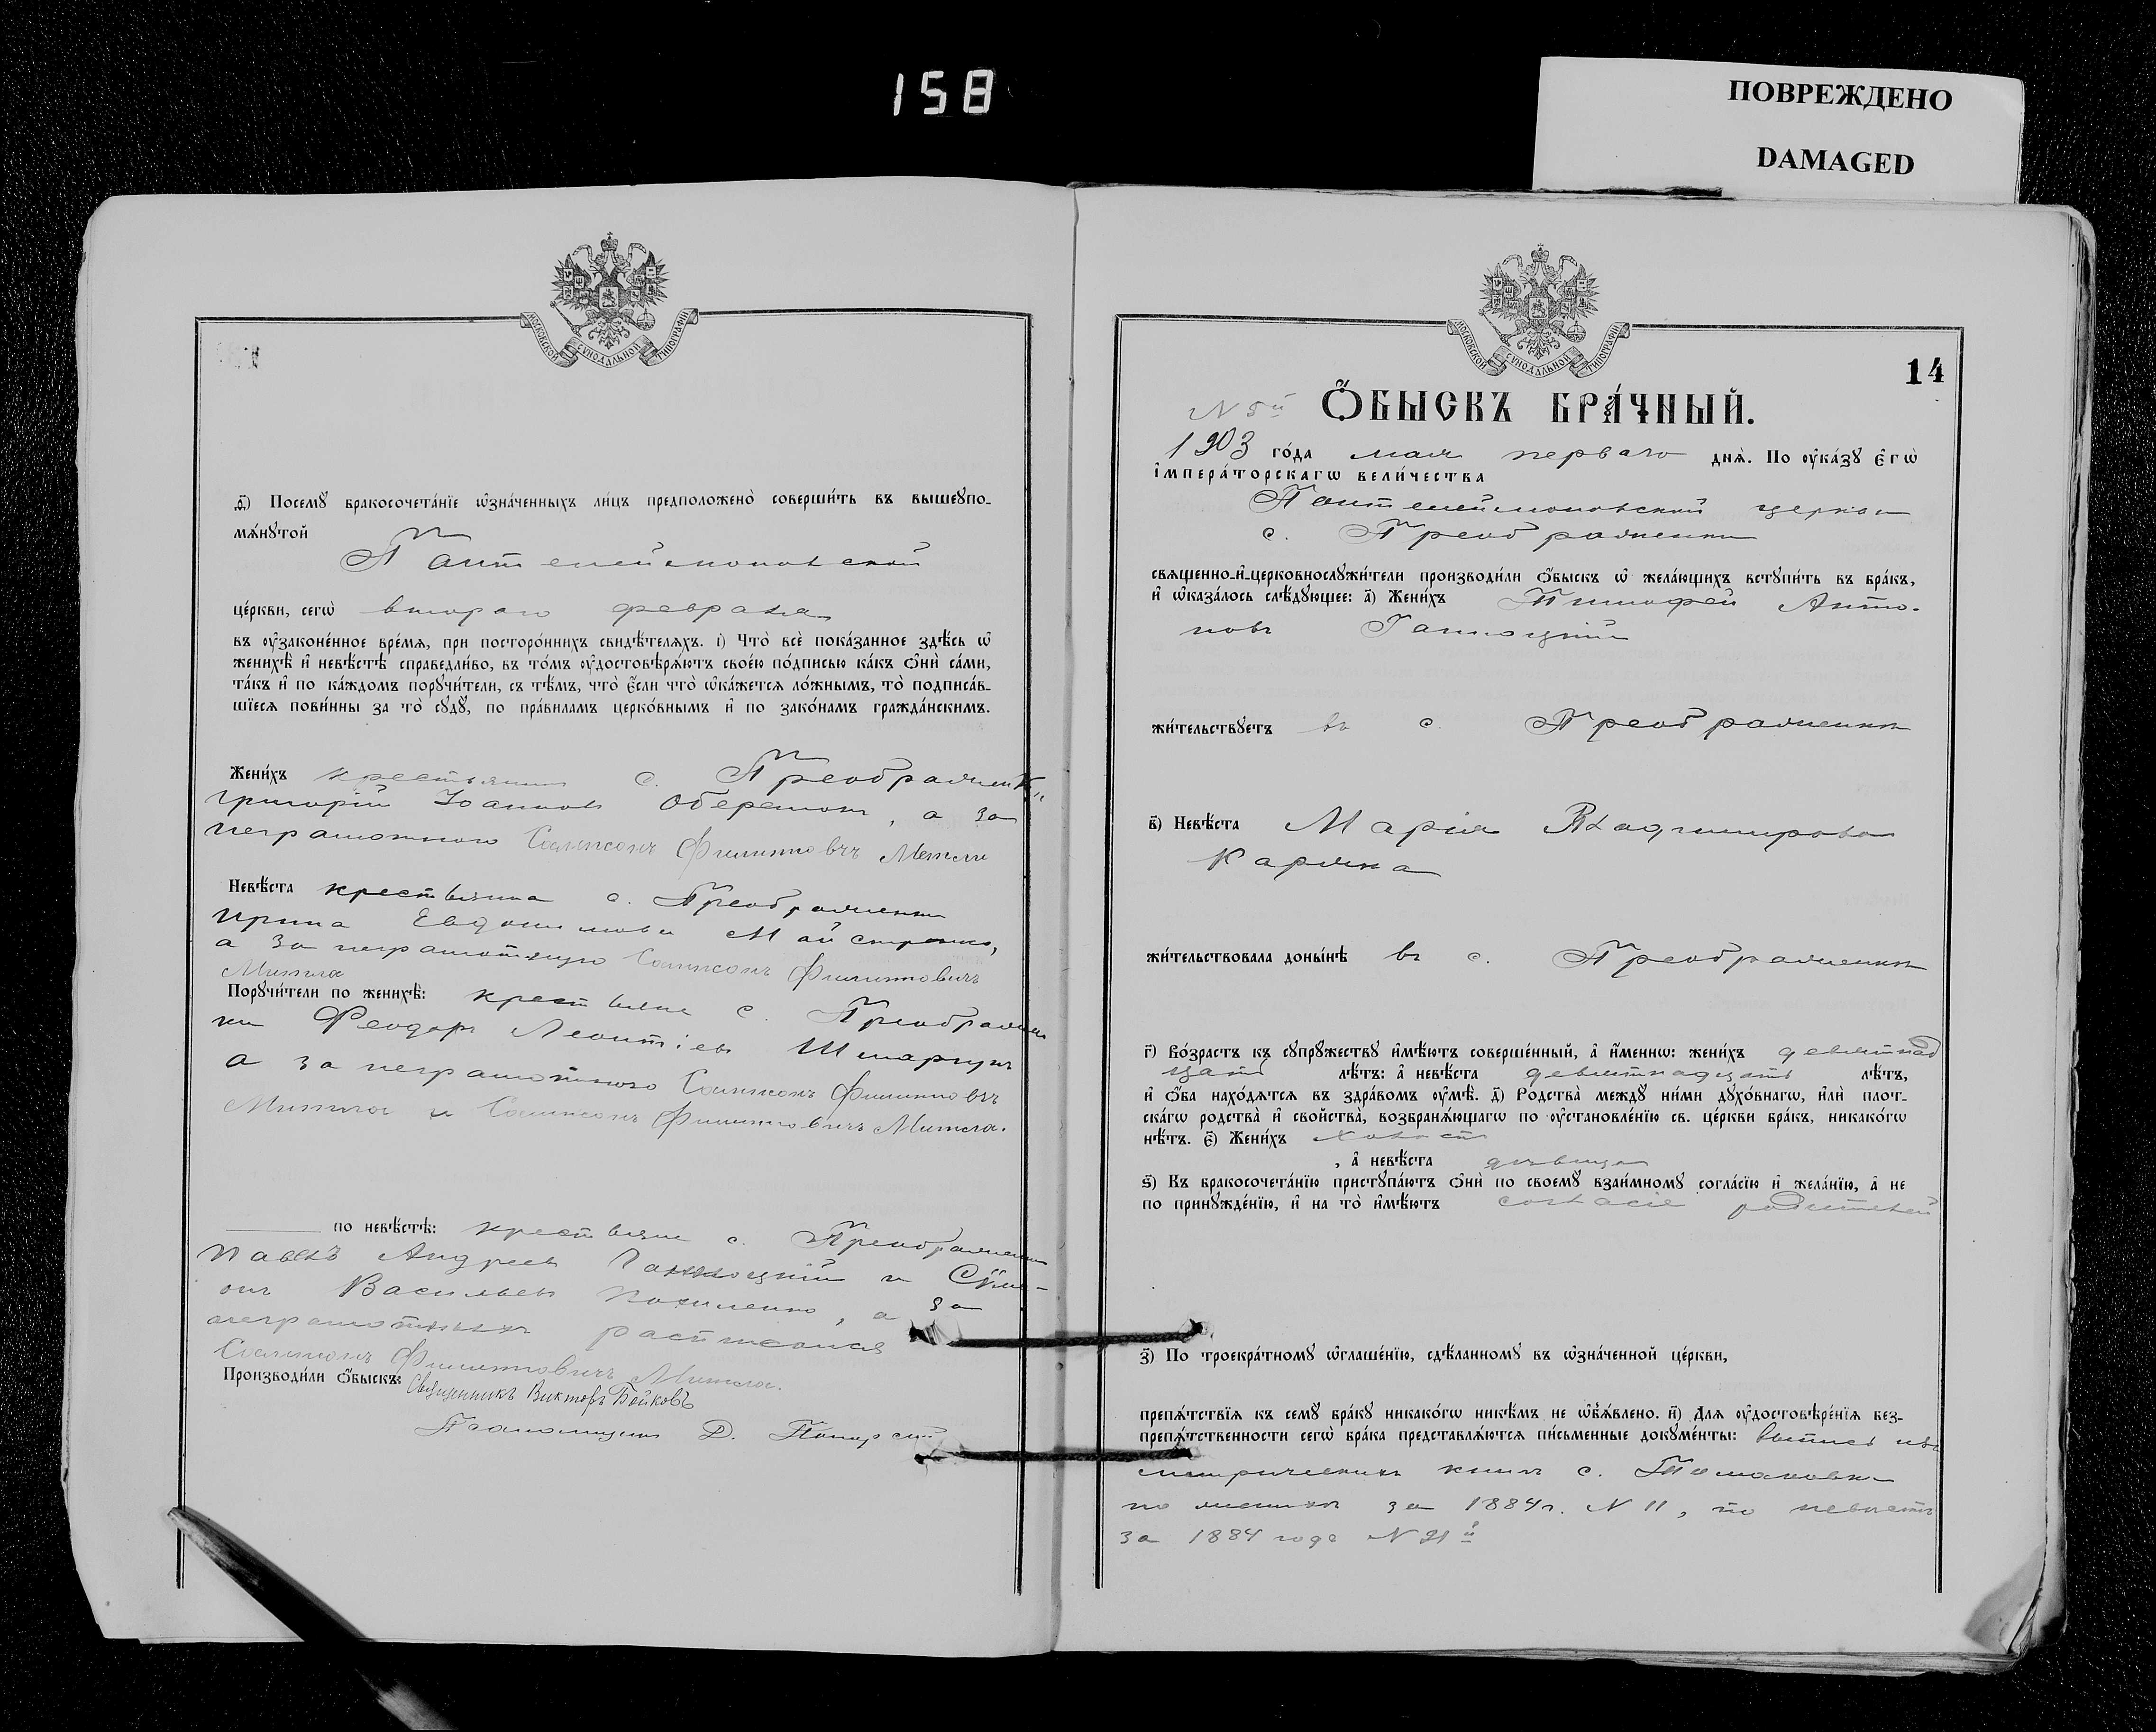 158
ПОВРЕЖДЕНО
DAMAGED
МОСКОВСКОЙ СУНОДАЛЬНОЙ ТИПОГРАФІИ
ѳ҃) Посемꙋ бракосочета́нїе ѡ҆зна́ченныхъ ли́цъ предположено̀ соверши́ть въ вышеꙋпо-
мѧ́нꙋтой
Пантелеймоновской
це́ркви, сегѡ̀ второго февраля
въ ᲂу҆законе́нное вре́мѧ, при посторо́ннихъ свидѣ́телѧхъ. і҃) Что̀ всѐ пока́занное здѣ́сь ѡ҆
женихѣ̀ и҆ невѣ́стѣ справедли́во, въ то́мъ ᲂу҆достовѣрѧ́ютъ свое́ю по́дписью ка́къ ѻ҆нѝ са́ми,
та́къ и҆ по ка́ждомъ порꙋчи́тели, съ тѣ́мъ, что̀ є҆́сли что̀ ѡ҆ка́жетсѧ ло́жнымъ, то̀ подписа́в-
шїесѧ пови́нны за то̀ сꙋдꙋ̀, по пра́виламъ церко́внымъ и҆ по зако́намъ гражда́нскимъ.
Жени́хъ крестьянин с. Преображенки
Григорій Іоаннов Оберемок, а за
неграмотного Сампсонъ Филипповичъ
Невѣ́ста крестьянка с. Преображенки
Ирина Евдокимова Майстренко,
а за неграмотную Сампсонъ Филипповичъ
Порꙋчи́тели по женихѣ̀: крестьяне с. Преображен
ки Феодоръ Леонтіев
а за неграмотного Сампсонъ Филипповичъ
и Сампсонъ Филипповичъ
по невѣ́стѣ: крестьяне с. Преображенки
Павелъ Андреев и Симе-
он Васильев, а за
неграмотных расписался
Сампсонъ Филипповичъ
Производи́ли ѻ҆́быскъ: Священникъ Викторъ Бойковъ
Псаломщик Д.
МОСКОВСКОЙ СУНОДАЛЬНОЙ ТИПОГРАФІИ
14
N 5й ѺБЫСКЪ БРА́ЧНЫЙ.
1903 го́да мая первого днѧ̀. По ᲂу҆ка́зꙋ є҆гѡ̀
і҆мпера́торскагѡ вели́чества
Пантелеймоновской церкви
с. Преображенки
свѧщенно-и҆-церковнослꙋжи́тели производи́ли ѻ҆́быскъ ѡ҆ жела́ющихъ встꙋпи́ть въ бра́къ,
и҆ ѡ҆каза́лось слѣ́дꙋющее: а҃) Жени́хъ Тимофей Анто-
нов
жи́тельствꙋетъ въ с. Преображенки
в҃) Невѣ́ста Марія Владимирова
Каряка
жи́тельствовала доны́нѣ въ с. Преображенки
г҃) Во́зрастъ къ сꙋпрꙋжествꙋ и҆мѣ́ютъ соверше́нный, а҆ и҆́менно: жени́хъ девятнад
цать лѣ́тъ: а҆ невѣ́ста девятнадцать лѣ́тъ,
и҆ ѻ҆́ба нахо́дѧтсѧ въ здра́вомъ ᲂу҆мѣ̀. д҃) Родства̀ междꙋ ни́ми дꙋхо́внагѡ, и҆лѝ плот-
ска́гѡ родства̀ и҆ свойства̀, возбранѧ́ющагѡ по ᲂу҆становле́нїю св. це́ркви бра́къ, никако́гѡ
нѣ́тъ. є҃) Жени́хъ холост
, а҆ невѣ́ста дѣвица
ѕ҃) Къ бракосочета́нїю пристꙋпа́ютъ ѻ҆нѝ по своемꙋ̀ взаи́мномꙋ согла́сїю и҆ жела́нїю, а҆ не
по принꙋжде́нїю, и҆ на то̀ и҆мѣ́ютъ согласіе родителей
з҃) По троекра́тномꙋ ѡ҆глаше́нїю, сдѣ́ланномꙋ въ ѡ҆зна́ченной це́ркви,
препѧ́тствїѧ къ семꙋ̀ бра́кꙋ никако́гѡ никѣ́мъ не ѡ҆б̾ѧ́влено. и҃) Длѧ ᲂу҆достовѣре́нїѧ без-
препѧ́тственности сегѡ̀ бра́ка представлѧ́ютсѧ пи́сьменные докꙋме́нты: выписъ изъ
метрических книг с. Томаковки
по жениху за 1884 г. N 11, по невѣстѣ
за 1884 года N 21й